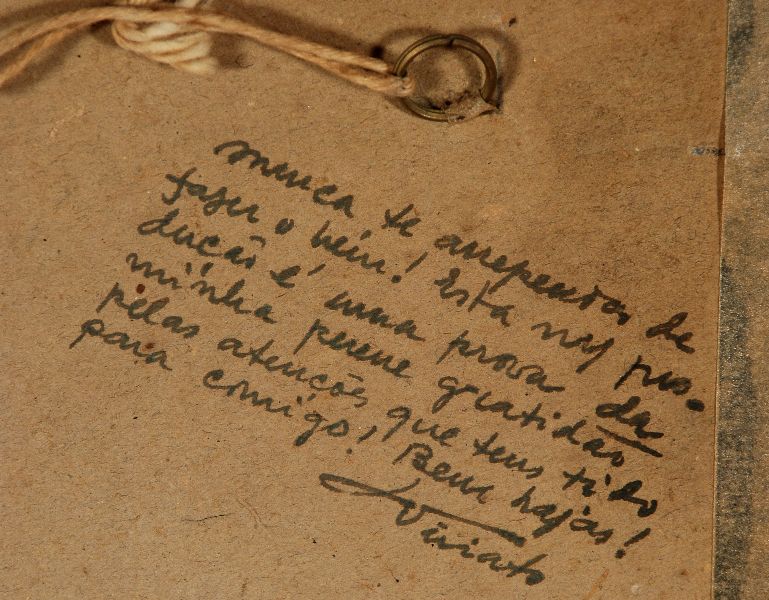 Nunca te arrependas de
fazer o bem! Esta rep pro-
ducão é uma prova da
minha perene gratidão
pelas atencões que tens tido
para comigo! Bem hajas!
Viriato